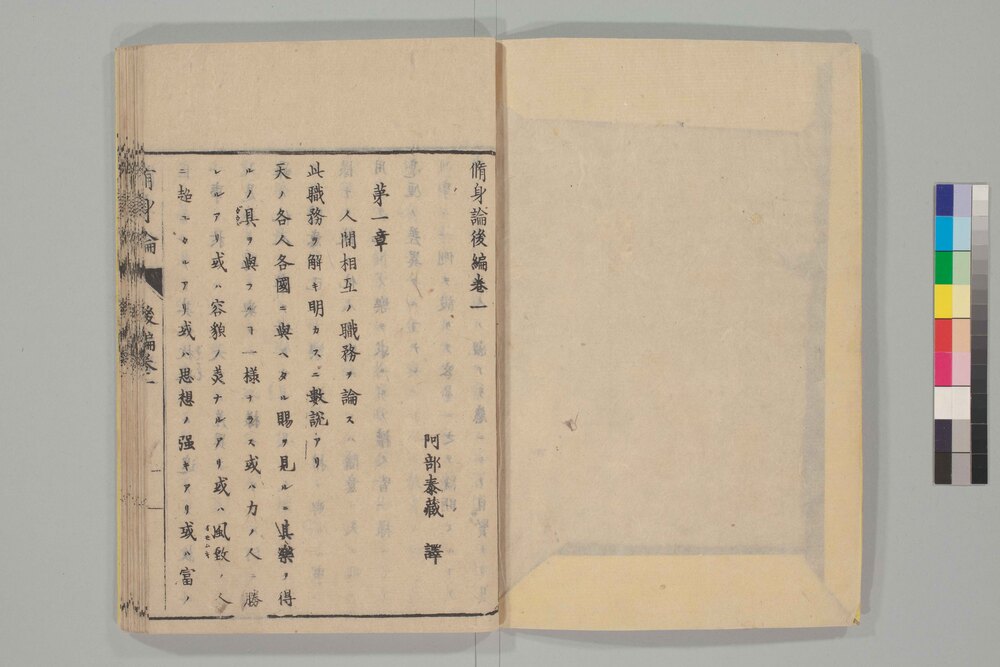 脩身論後編巻一
阿部泰藏 譯
苐一章
人間相互ノ職務ヲ論ス
此職務ヲ解キ明カスニ數説アリ
天ノ各人各國ニ與ヘタル賜ヲ見ルニ其樂ヲ得
ルノ具ヲ與フルヿ一様ナラス或ハ力ノ人ニ勝
レルアリ或ハ容貌ノ美ナルアリ或ハ風致ノ人
ニ超ユルアリ或ハ思想ノ强キアリ或ハ富ノ
脩身論 後編巻一